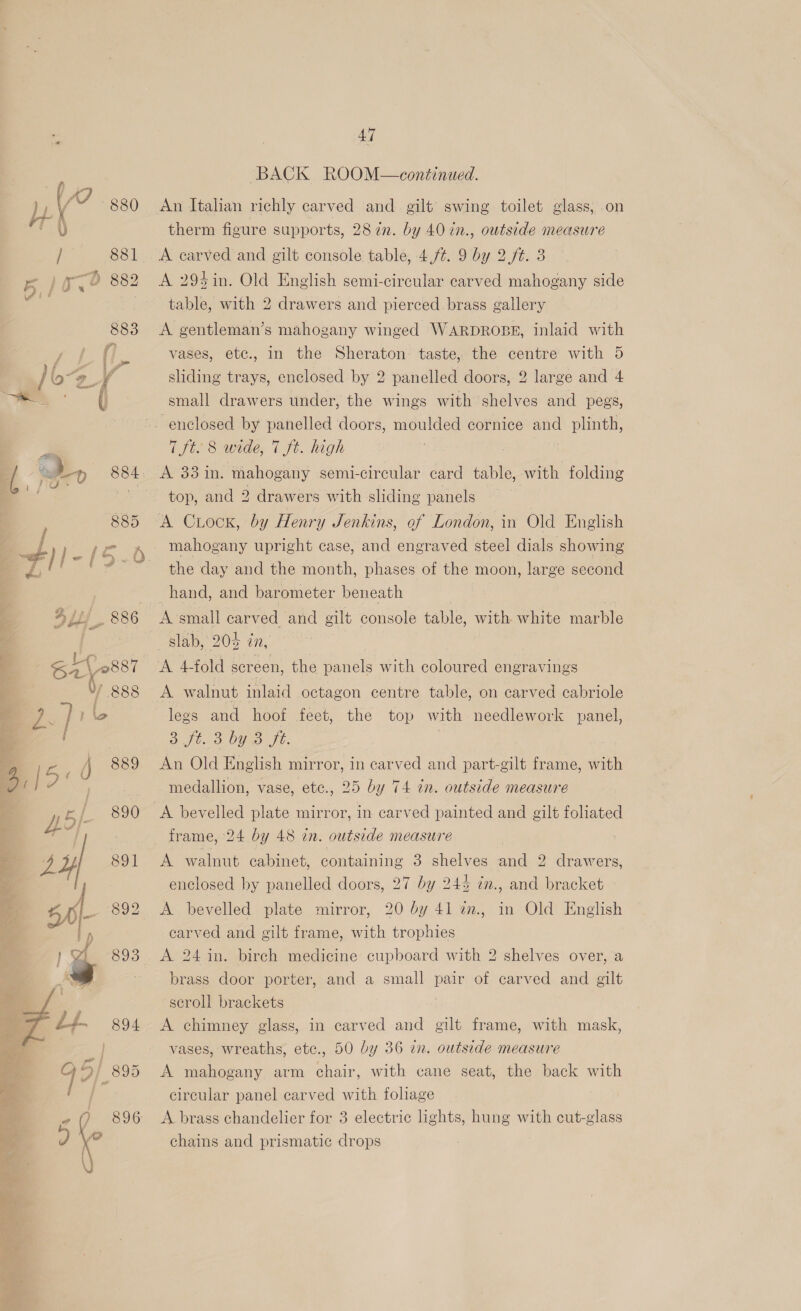 47
BACK ROOM—continued.
880 An Italian richly carved and gilt swing toilet glass, on
therm figure supports, 28 in. by 40 in., outside measure
881 A carved and gilt console table, 4 ft. 9 by 2 ft. 3
882 A 29½ in. Old English semi-circular carved mahogany side
table, with 2 drawers and pierced brass gallery
883 A gentleman's mahogany winged WARDROBE, inlaid with
vases, etc., in the Sheraton taste, the centre with 5
sliding trays, enclosed by 2 panelled doors, 2 large and 4
small drawers under, the wings with shelves and pegs,
enclosed by panelled doors, moulded cornice and plinth,
7 ft. 8 wide, 7 ft. high
884 A 33 in. mahogany semi-circular card table, with folding
top, and 2 drawers with sliding panels
885 A CLOCK, by Henry Jenkins, of London, in Old English
mahogany upright case, and engraved steel dials showing
the day and the month, phases of the moon, large second
hand, and barometer beneath
886 A small carved and gilt console table, with white marble
slab, 20½ in,
887 A 4-fold screen, the panels with coloured engravings
888 A walnut inlaid octagon centre table, on carved cabriole
legs and hoof feet, the top with needlework panel,
3 ft. 3 by 3 ft.
889 An Old English mirror, in carved and part-gilt frame, with
medallion, vase, etc., 25 by 74 in. outside measure
890 A bevelled plate mirror, in carved painted and gilt foliated
frame, 24 by 48 in. outside measure
891 A walnut cabinet, containing 3 shelves and 2 drawers,
enclosed by panelled doors, 27 by 24½ in., and bracket
892 A bevelled plate mirror, 20 by 41 in., in Old English
carved and gilt frame, with trophies
893 A 24 in. birch medicine cupboard with 2 shelves over, a
brass door porter, and a small pair of carved and gilt
scroll brackets
894 A chimney glass, in carved and gilt frame, with mask,
vases, wreaths, etc., 50 by 36 in. outside measure
895 A mahogany arm chair, with cane seat, the back with
circular panel carved with foliage
896 A brass chandelier for 3 electric lights, hung with cut-glass
chains and prismatic drops